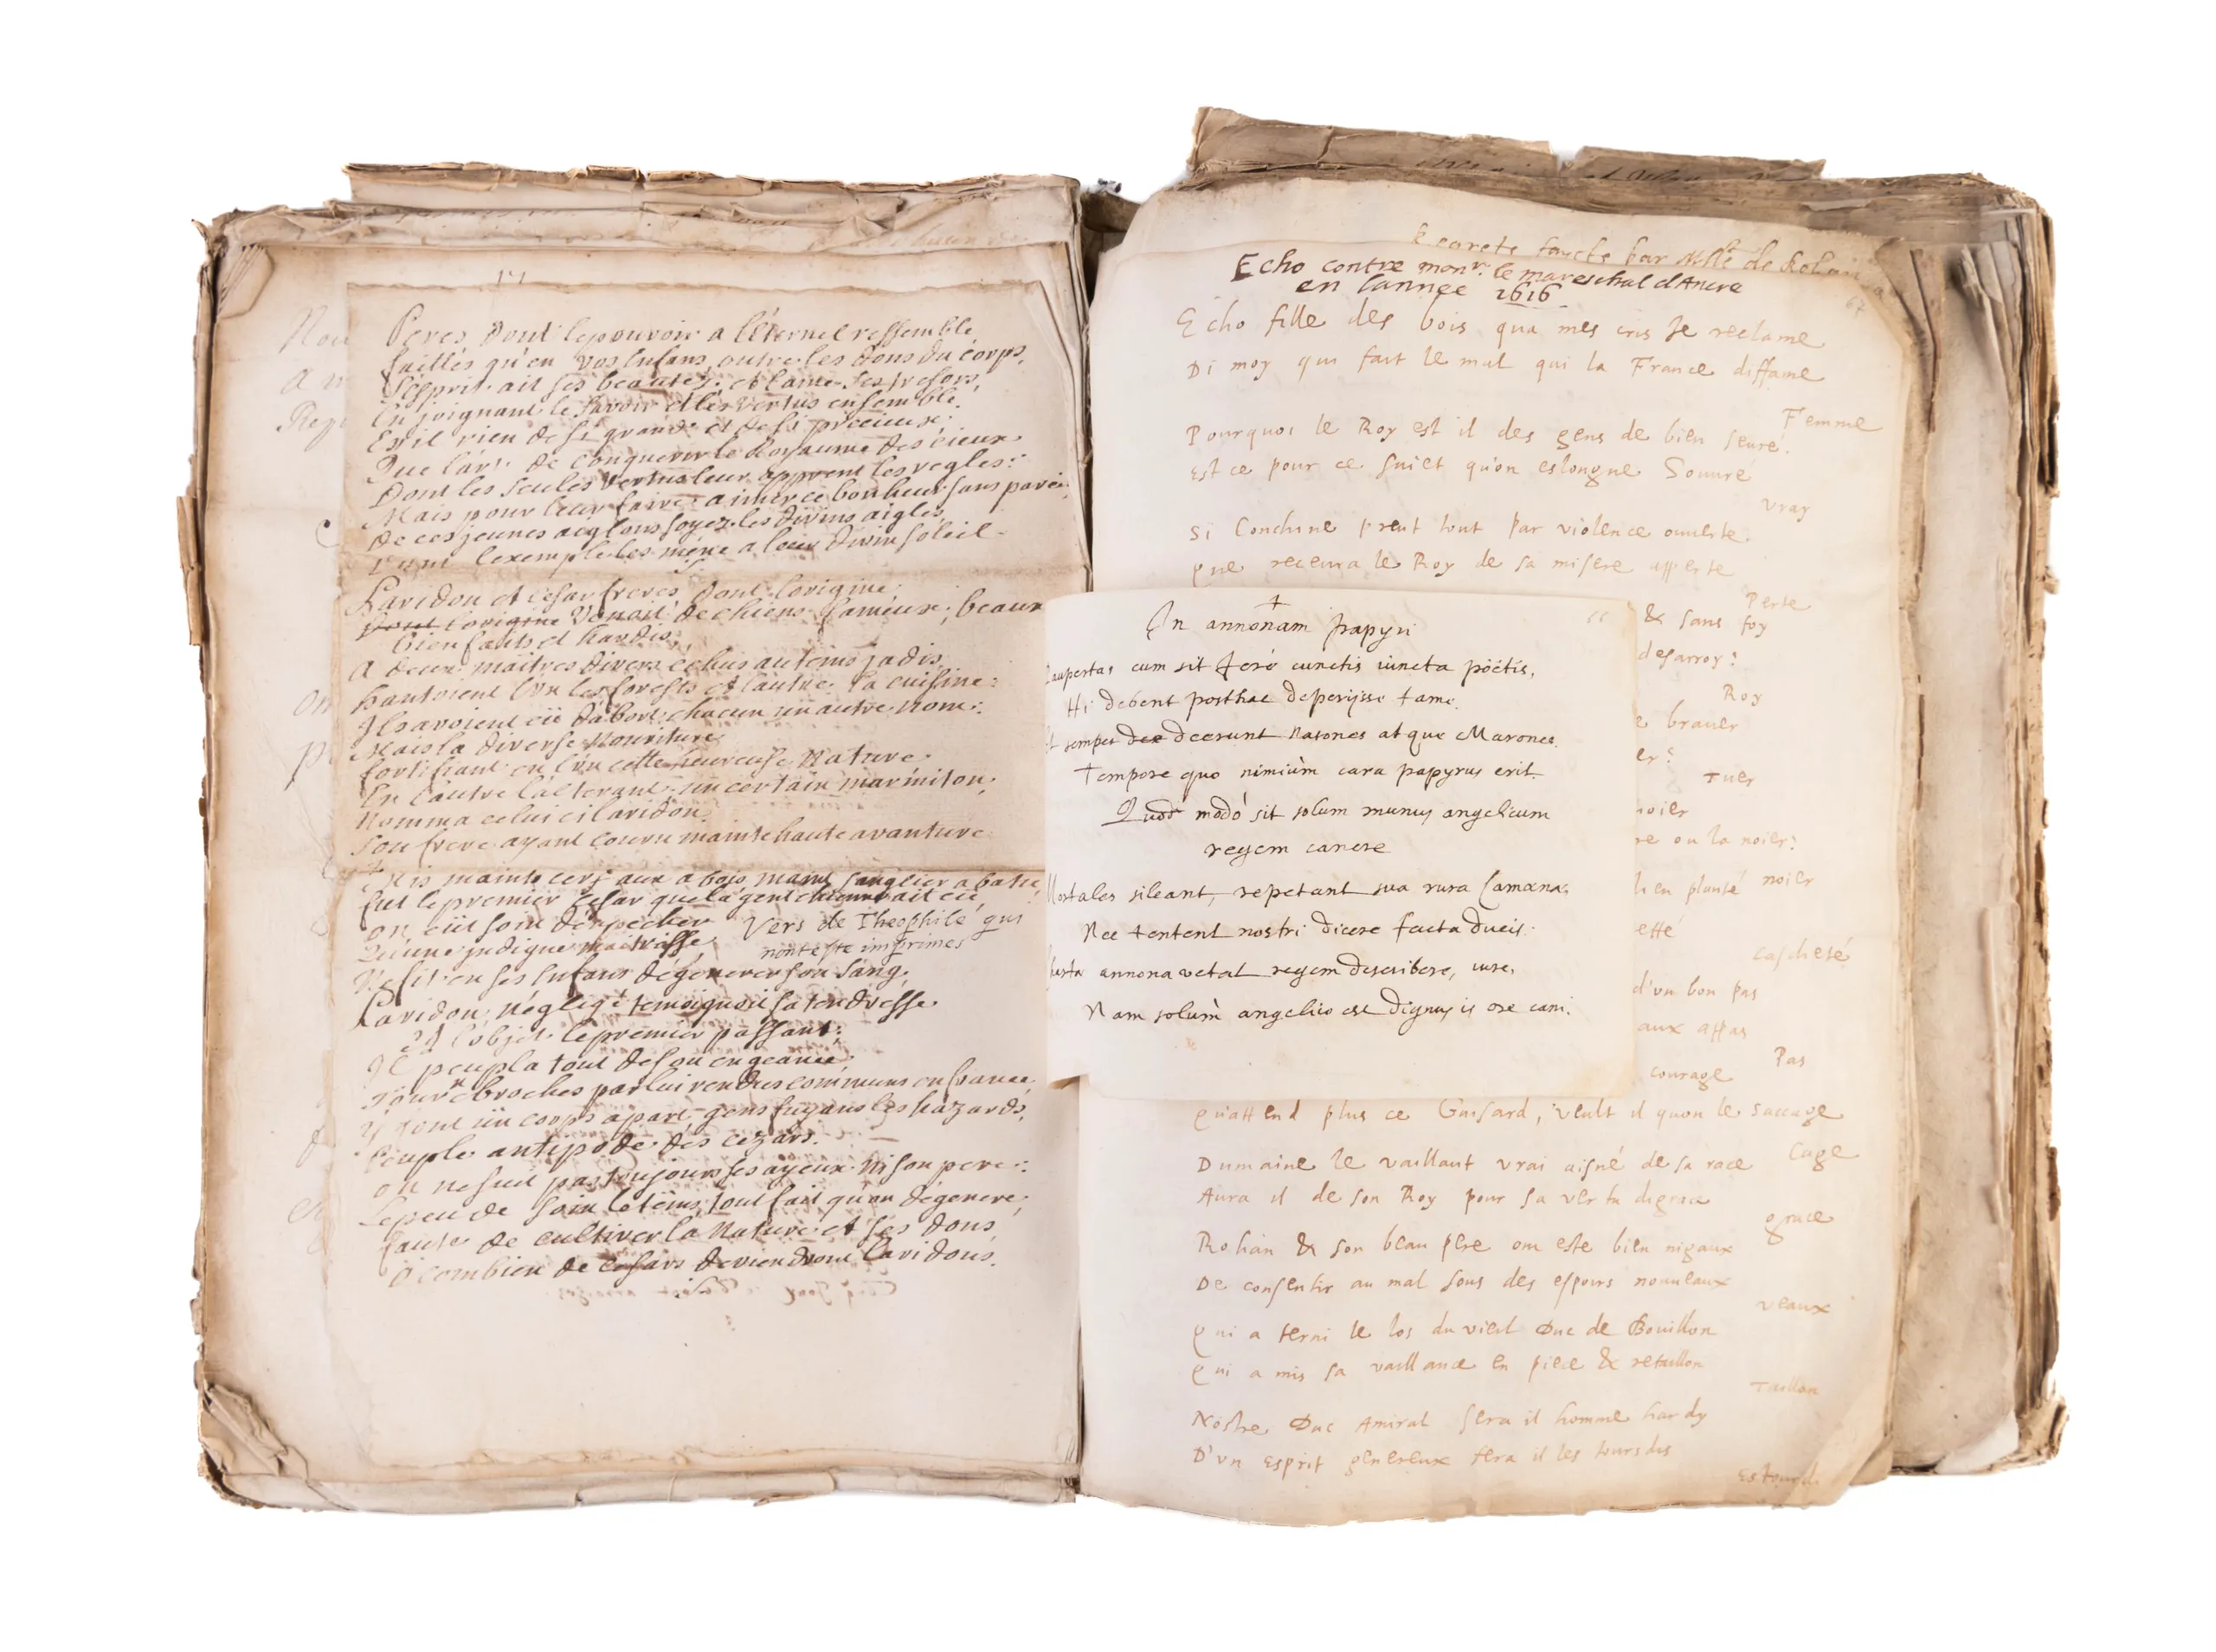 Peres dont le pouvoir a l'éternel ressemble
faittes qu'en vos enfans, outre les dons du corps,
l'esprit ait ses beautez, et l'ame ses tresors,
En joignant le savoir et les vertus ensemble.
Est il rien de si grand et de si precieux,
Que l'art de conquerir le Royaume des cieux
Dont les seules vertus leur apprent les regles:
Mais pour leur faire aimer ce bonheur sans pareil,
de ces jeunes aiglons soyez les divins aigles,
l'exemple les méne a leur divin soleil.
Laridon et cesar freres dont l'origine
Dont l'origine Venait de chiens fameux, beaux
bien faits et hardis,
A deux maitres divers échus au tems jadis,
hantoient l'un les forests et l'autre la cuisine:
Ils avoient eü d'abort chacun un autre nom:
Mais la diverse Nouriture
fortifiant en l'un cette heureuse Nature
En l'autre l'alterant, un certain marmiton,
Nomma celui ci laridon
Son frere ayant couru mainte haute avanture
Mis mainte cerf aux abois, maint sanglier abatu,
fut le premier cesar que la gent chienne ait eü,
on eüt soin d'enpecher
Qu'une indigne maitresse
Vers de Theophile qui
nont este imprimes
Ne fit en ses enfans dégenerer son sang,
Laridon négligé temoignoit sa tendresse
A l'objet le premier passant;
Il peupla tout de son engeance,
Tournebroches par lui rendus communs en france,
Y font un corps apart, gens fuyans les hazards,
Peuple antipode des cezars.
On ne suit pas toujours ses ayeux ni son pere:
Le peu de soin, le tems, tout fait qu'on dégenere,
faute de cultiver la Nature et ses dons
O combien de cesars deviendront laridons.
Echo contre monr. le mareschal d'Ancre
en lannee 1616
67
Echo fille des bois qua mes cris Je reclame
Di moy qui fait le mal qui la France diffame
Femme
Pourquoi le Roy est il des gens de bien seuré.
Est ce pour ce suiet qu'on eslongne Souuré
Vray
Si Conchine preut tout par violence ouuerte.
que receura le Roy de sa misere apperte
Perte
& sans foy
desarroy?
Roy
e brauer
er?
Tuer
noier
re ou la noier?
noier
bien planté
etté
Cascheté
d'vn bon pas
aux appas
Pas
courage
In annonam papyri
Paupertas cum sit ferè cunctis iuncta poëtis,
Hi debent posthac deperijsse fame.
Et semper dee deerunt Nasones atque Marones
Tempore quo nimiùm cara papyrus erit.
Quod modò sit solum munus angelicum
regem canere
Mortales sileant, repetant sua rura Camœnæ
Nec tentent nostri dicere facta ducis.
Iusta annona vetat regem describere, iure,
Nam solùm angelico est dignus is ore cani.
qu'attend plus ce Guisard, veult il quon le saccage
Cage
Dumaine le vaillant vrai aisné de sa race
Aura il de son Roy pour sa vertu digrace
grace
Rohan & son beau pere ont este bien nigaux
De consentir au mal sous des espoirs nouueaux
veaux
Qui a terni le los du vieil Duc de Bouillon
Qui a mis sa vaillance en piece & retaillon
Taillon
Nostre Duc Amiral sera il homme hardy
D'vn esprit genereux fera il les tours dis
Estourdi